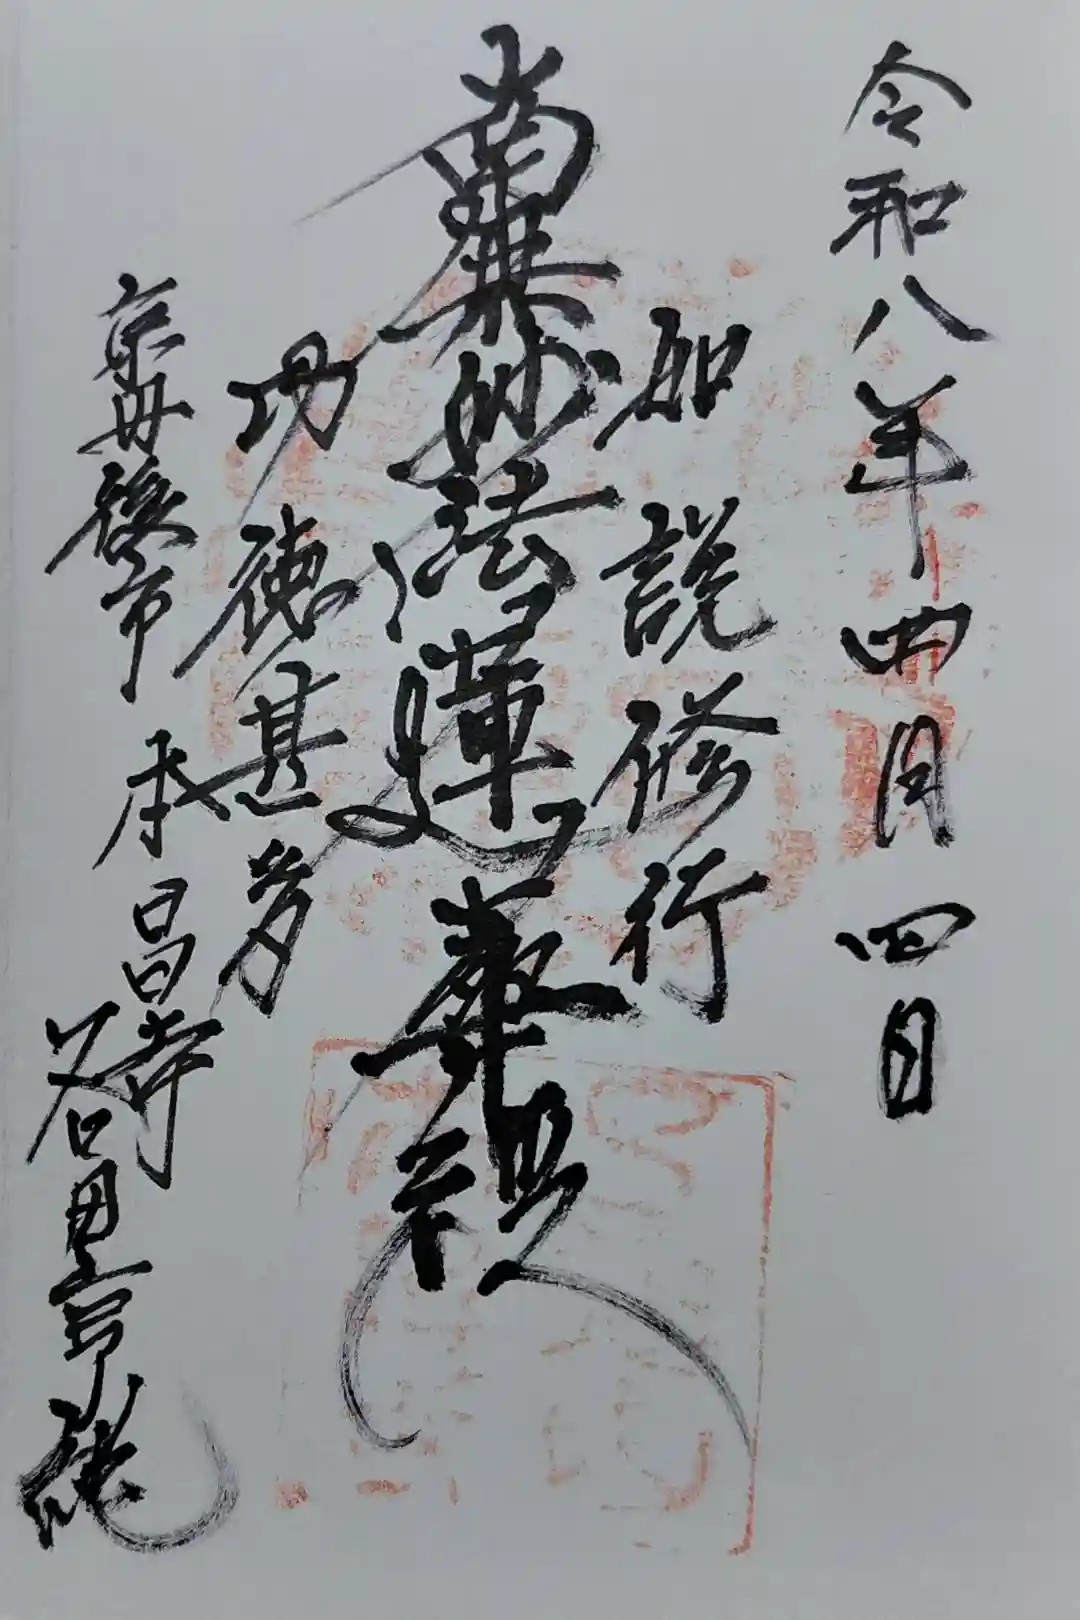 令和八年四月四日
如説修行
南無妙法蓮華経
功徳甚多
京丹後市
本昌寺